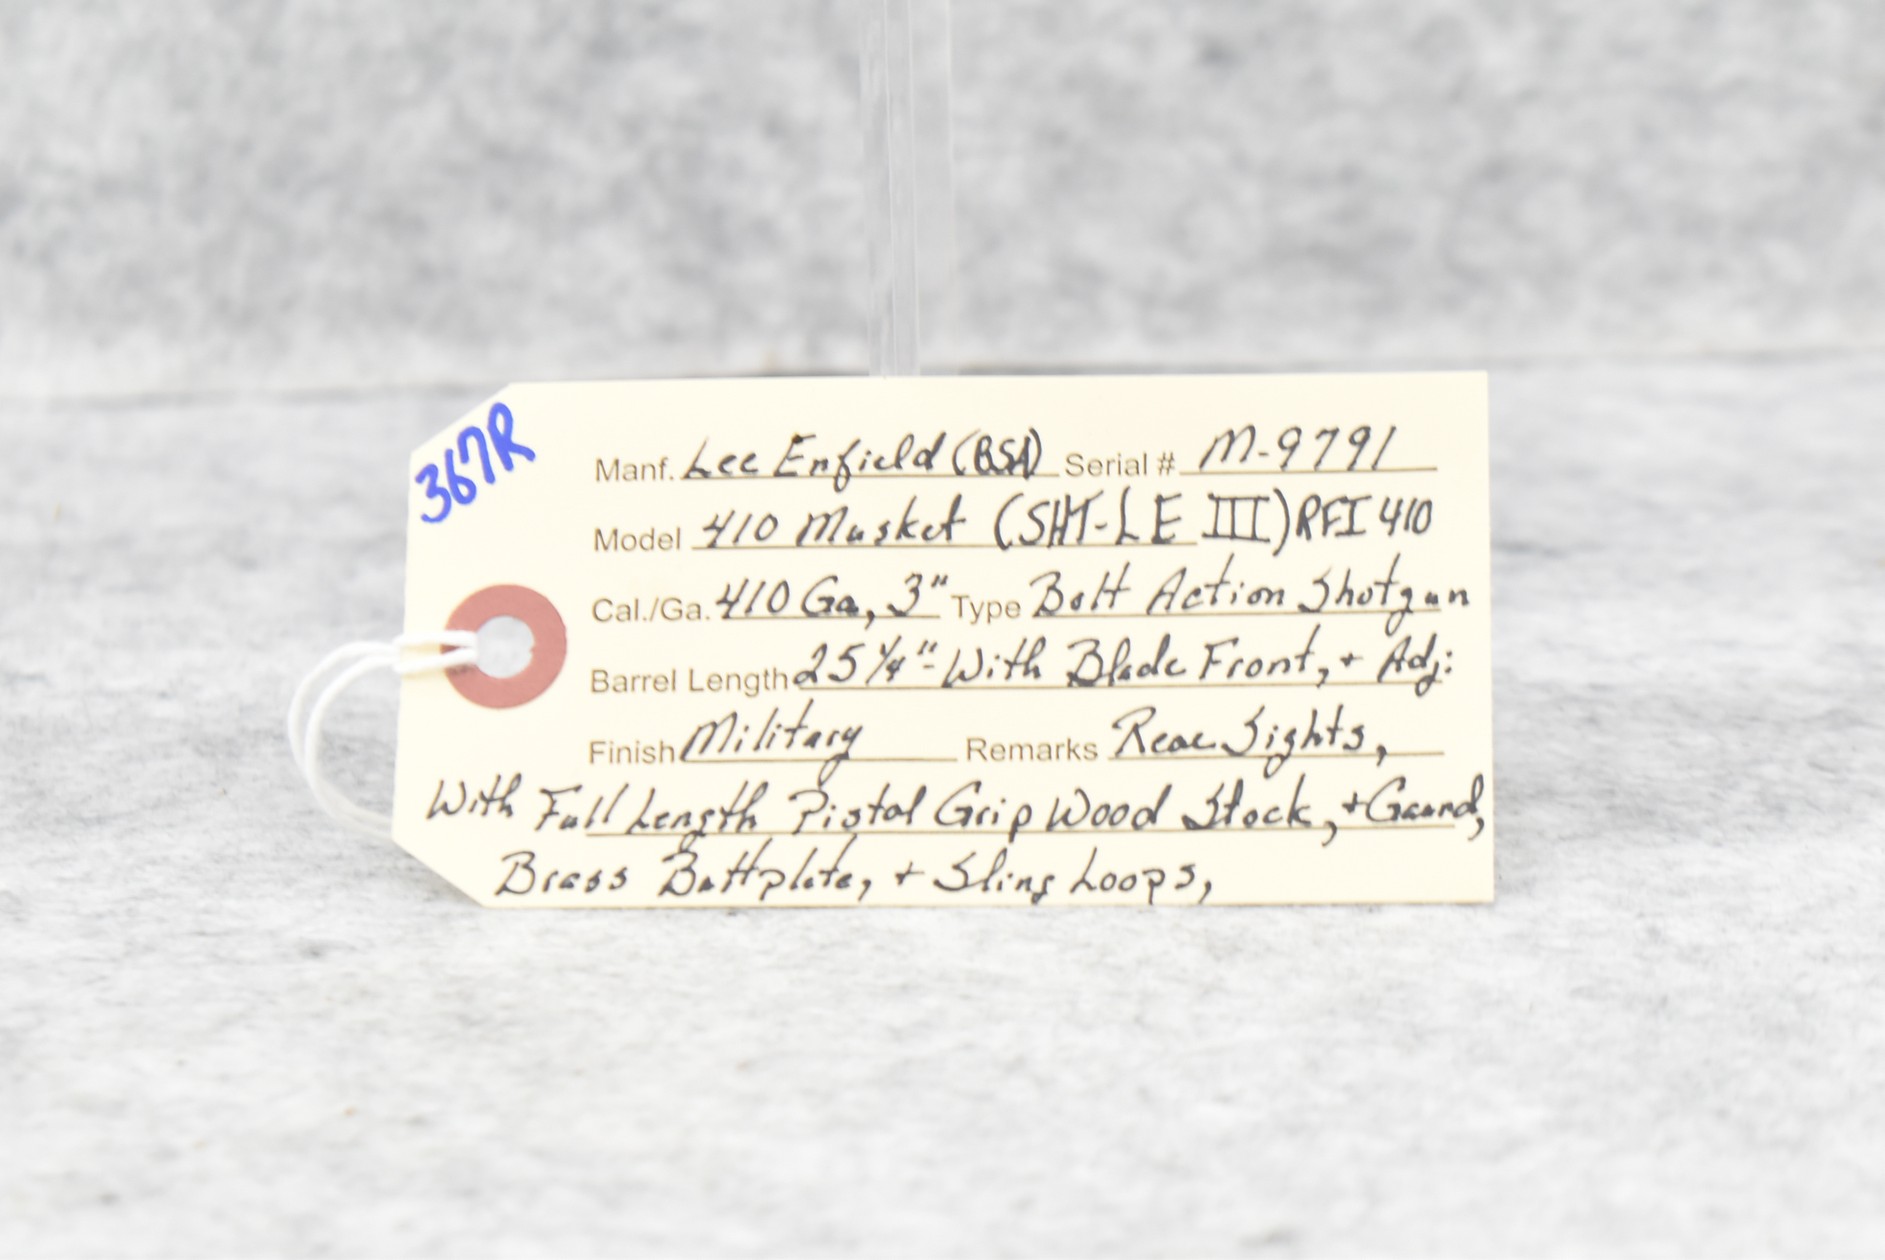 367R
Manf. Lee Enfield (BSA) Serial # M-9791
Model 410 Musket (SHT-LE III) RFI 410
Cal./Ga. 410 Ga, 3" Type Bolt Action Shotgun
Barrel Length 25 1/4" - With Blade Front, + Adj:
Finish Military Remarks Rear Sights,
With Full Length Pistol Grip Wood Stock, + Gaurd,
Brass Buttplate, + Sling Loops,